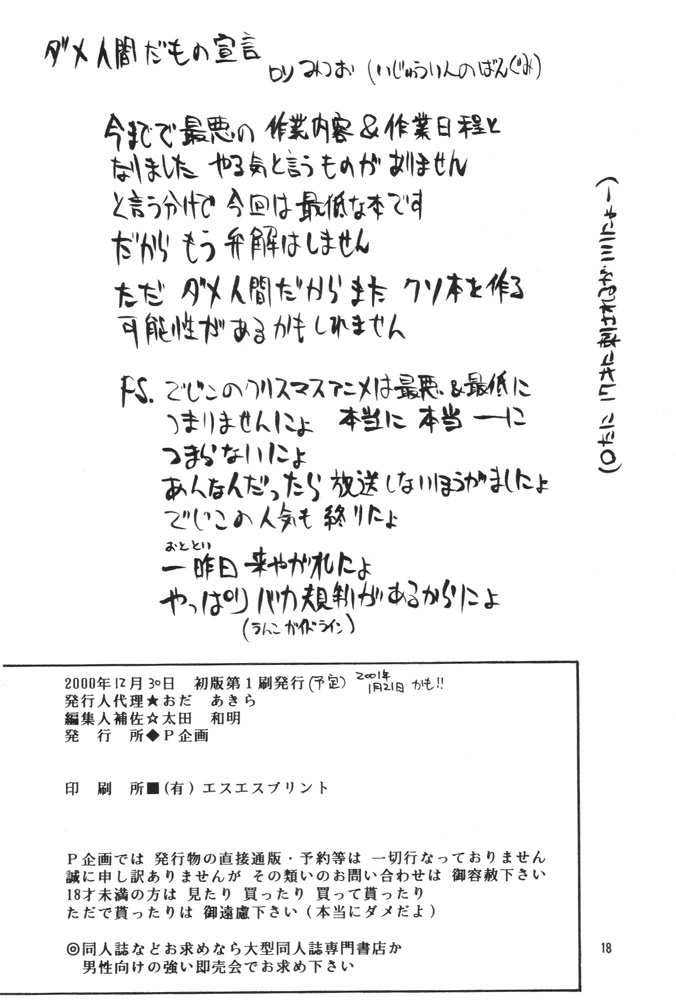 ダメ人間だもの宣言
by みつお (いじゅういんのばんぐみ)
今までで最悪の 作業内容&作業日程と
なりました やる気と言うものがありません
と言う分けで 今回は最低な本です
だから もう 弁解はしません
ただ ダメ人間だからまた クソ本を作る
可能性があるかもしれません
P.S. でじこのクリスマスアニメは最悪&最低に
つまりませんにょ 本当に 本当ーに
つまらないにょ
あんなんだったら 放送しないほうがましにょ
でじこの人気も 終りにょ
おととい
一昨日 来やがれにょ
やっぱり バカ規制があるからにょ
(うんこガイドライン)
2000年12月30日 初版第1刷発行(予定) 2001年
1月21日 かも!!
発行人代理★おだ あきら
編集人補佐☆太田 和明
発 行 所◆P企画
印 刷 所■(有)エスエスプリント
P企画では 発行物の直接通版・予約等は 一切行なっておりません
誠に申し訳ありませんが その類いのお問い合わせは 御容赦下さい
18才未満の方は 見たり 買ったり 買って貰ったり
ただで貰ったりは 御遠慮下さい(本当にダメだよ)
◎同人誌などお求めなら大型同人誌専門書店か
男性向けの強い即売会でお求め下さい
18